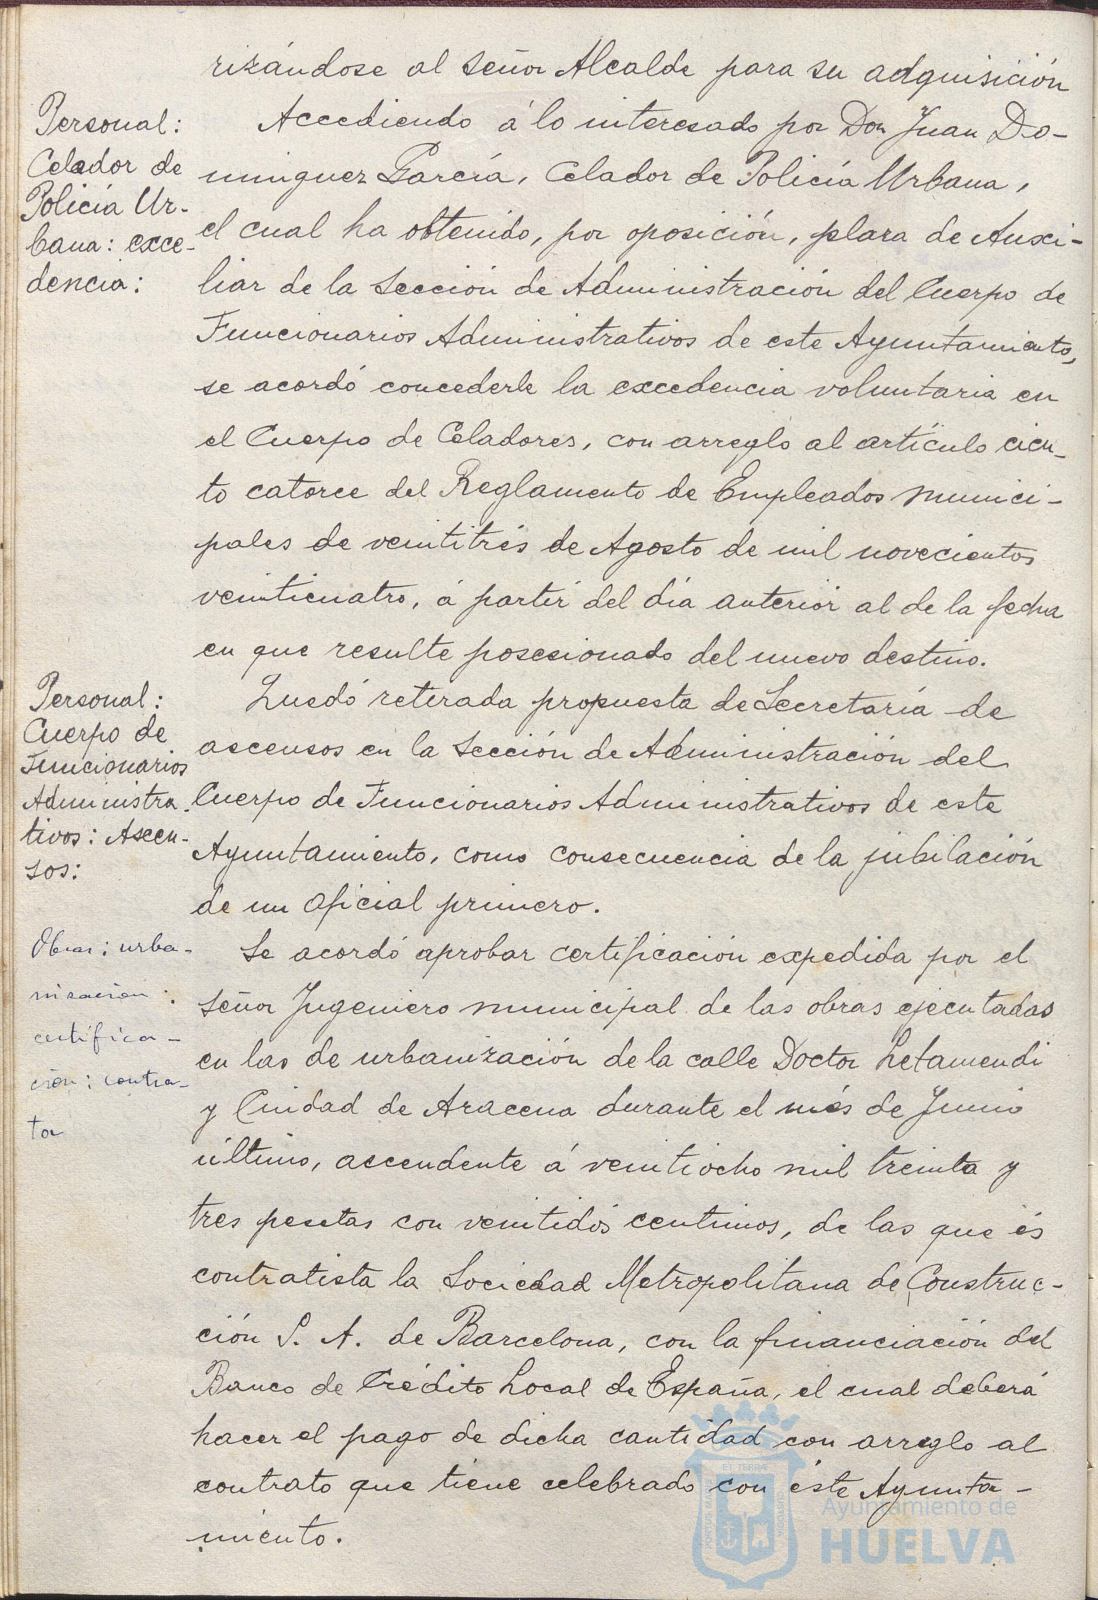 rizándose al Señor Alcalde para su adquisición
Personal:
Celador de
Policía Ur-
bana: exce-
dencia:
Accediendo á lo interesado por Don Juan Do-
minguez García, Celador de Policía Urbana,
el cual ha obtenido, por oposición, plaza de Auxi-
liar de la Sección de Administración del Cuerpo de
Funcionarios Administrativos de este Ayuntamiento,
se acordó concederle la excedencia voluntaria en
el Cuerpo de Celadores, con arreglo al artículo cien-
to catorce del Reglamento de Empleados munici-
pales de veintitrés de Agosto de mil novecientos
veinticuatro, á partir del día anterior al de la fecha
en que resulte posesionado del nuevo destino.
Personal:
Cuerpo de
Funcionarios
Administra-
tivos: Ascen-
sos:
Quedó retirada propuesta de Secretaría de
ascensos en la Sección de Administración del
Cuerpo de Funcionarios Administrativos de este
Ayuntamiento, como consecuencia de la jubilación
de un oficial primero.
Obras: urba-
nización:
certifica-
ción: contra-
ta
Se acordó aprobar certificación expedida por el
señor Ingeniero municipal de las obras ejecutadas
en las de urbanización de la calle Doctor Letamendi
y Ciudad de Aracena durante el més de Junio
último, ascendente á veintiocho mil treinta y
tres pesetas con veintidós centimos, de las que és
contratista la Sociedad Metropolitana de Construc-
ción S. A. de Barcelona, con la financiación del
Banco de Crédito Local de España, el cual deberá
hacer el pago de dicha cantidad con arreglo al
contrato que tiene celebrado con éste Ayunta-
miento.
Ayuntamiento de
HUELVA